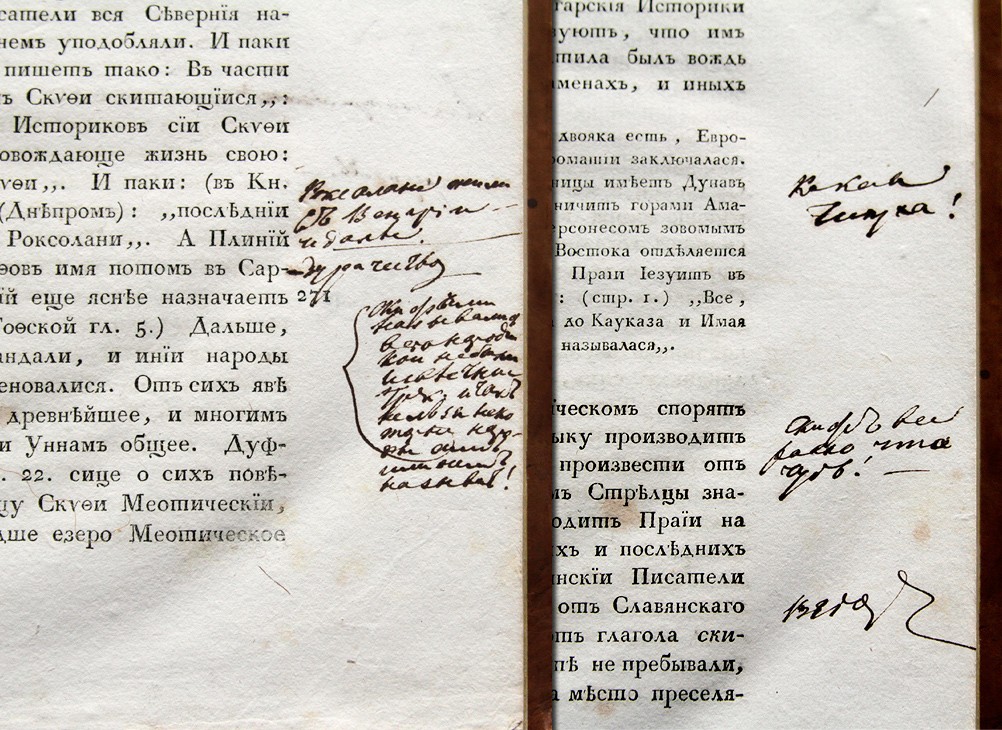 сатели вся Сѣвернія на-
немъ уподобляли. И паки
пишетъ тако: Въ части
ъ Скѵѳи скитающіися,,:
Историковъ сіи Скѵѳи
овождающе жизнь свою:
ѵѳи,,. И паки: (въ Кн.
(Днѣпромъ): ,,послѣдніи
Роксолани,,. А Плиній
ѳовъ имя потомъ въ Сар-
ій еще яснѣе назначаетъ
Гоѳской гл. 5.) Дальше,
андали, и иніи народы
еновалися. Отъ сихъ явѣ
древнѣйшее, и многимъ
и Уннамъ общее. Дуф-
. 22. сице о сихъ повѣ-
цу Скѵѳи Меотическіи,
дше езеро Меотическое
Роксоланы жили
въ Венгріи
и далѣе.
дурачество
271
называли
всѣ народы
кои не были
называть!
гарскія Историки
уютъ, что имъ
тила былъ вождь
менахъ, и иныхъ
двояка есть, Евро-
романіи заключалася.
ницы имѣетъ Дунав
ничитъ горами Ама-
ерсонесомъ зовомымъ
Востока отдѣляется
Праіи Іезуитъ въ
: (стр. 1.) ,,Все,
до Кауказа и Имая
называлася,,.
ическомъ спорятъ
ыку производитъ
произвести отъ
мъ Стрѣлцы зна-
одитъ Праіи на
хъ и послѣднихъ
нскіи Писатели
отъ Славянскаго
тъ глагола ски-
пѣ не пребывали,
а мѣсто преселя-
Какая
Чепуха!
Скифъ все
равно что
Чудь!